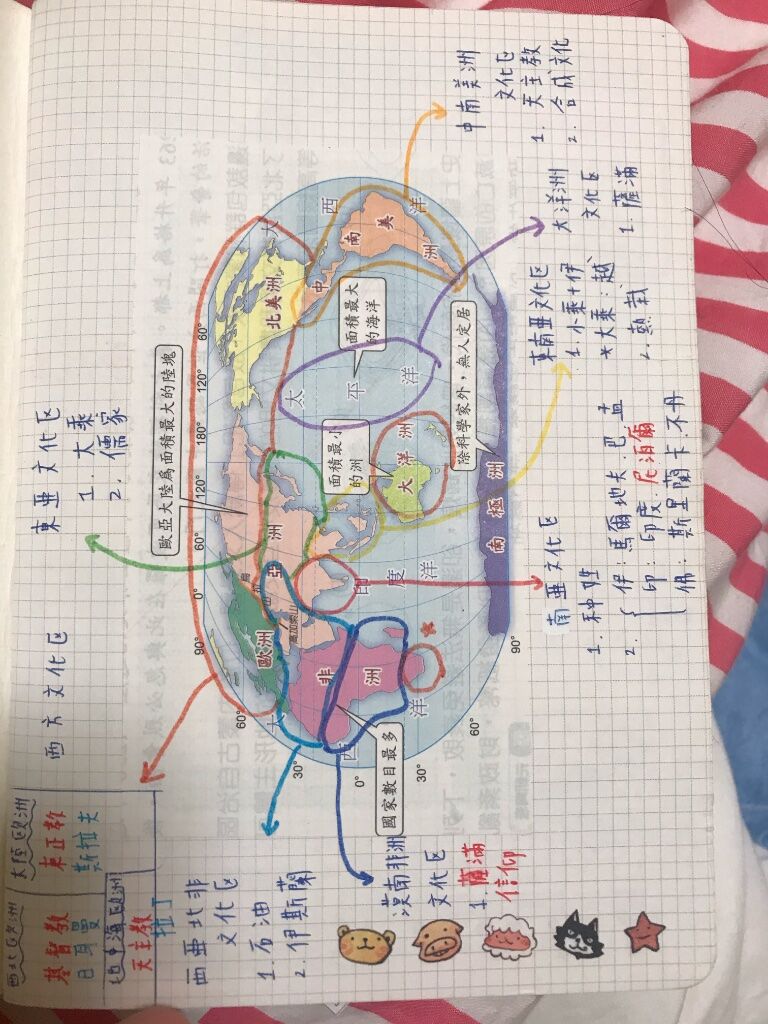 西北歐洲
基督教
日耳曼
大陸歐洲
東正教
斯拉夫
地中海歐洲
天主教
拉丁
西方文化区
東亜文化区
1. 大乘
2. 儒家
西亜北非
文化区
1. 石油
2. 伊斯蘭
漠南非洲
文化区
1. 薩滿
信仰
南亜文化区
1. 种姓
2. 伊：馬爾地夫.巴.孟
印：印度.尼泊爾
佛：斯里蘭卡.不丹
東南亜文化区
1. 小乘+伊
*大乘：越
2. 熱栽
大洋洲
文化区
1. 薩滿
中南美洲
文化区
1. 天主教
2. 合成文化
歐亞大陸為面積最大的陸塊
面積最大
的海洋
面積最小
的洲
除科學家外，無人定居
國家數目最多
歐洲
亞洲
非洲
北美洲
中南美洲
大洋洲
南極洲
太平洋
印度洋
大西洋
大西洋
烏拉山
高加索山
90°
0°
60°
120°
180°
120°
60°
60°
30°
0°
30°
60°
90°